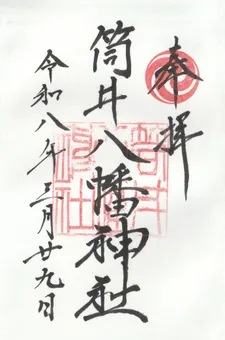 奉拝
筒井八幡神社
令和八年三月廿九日